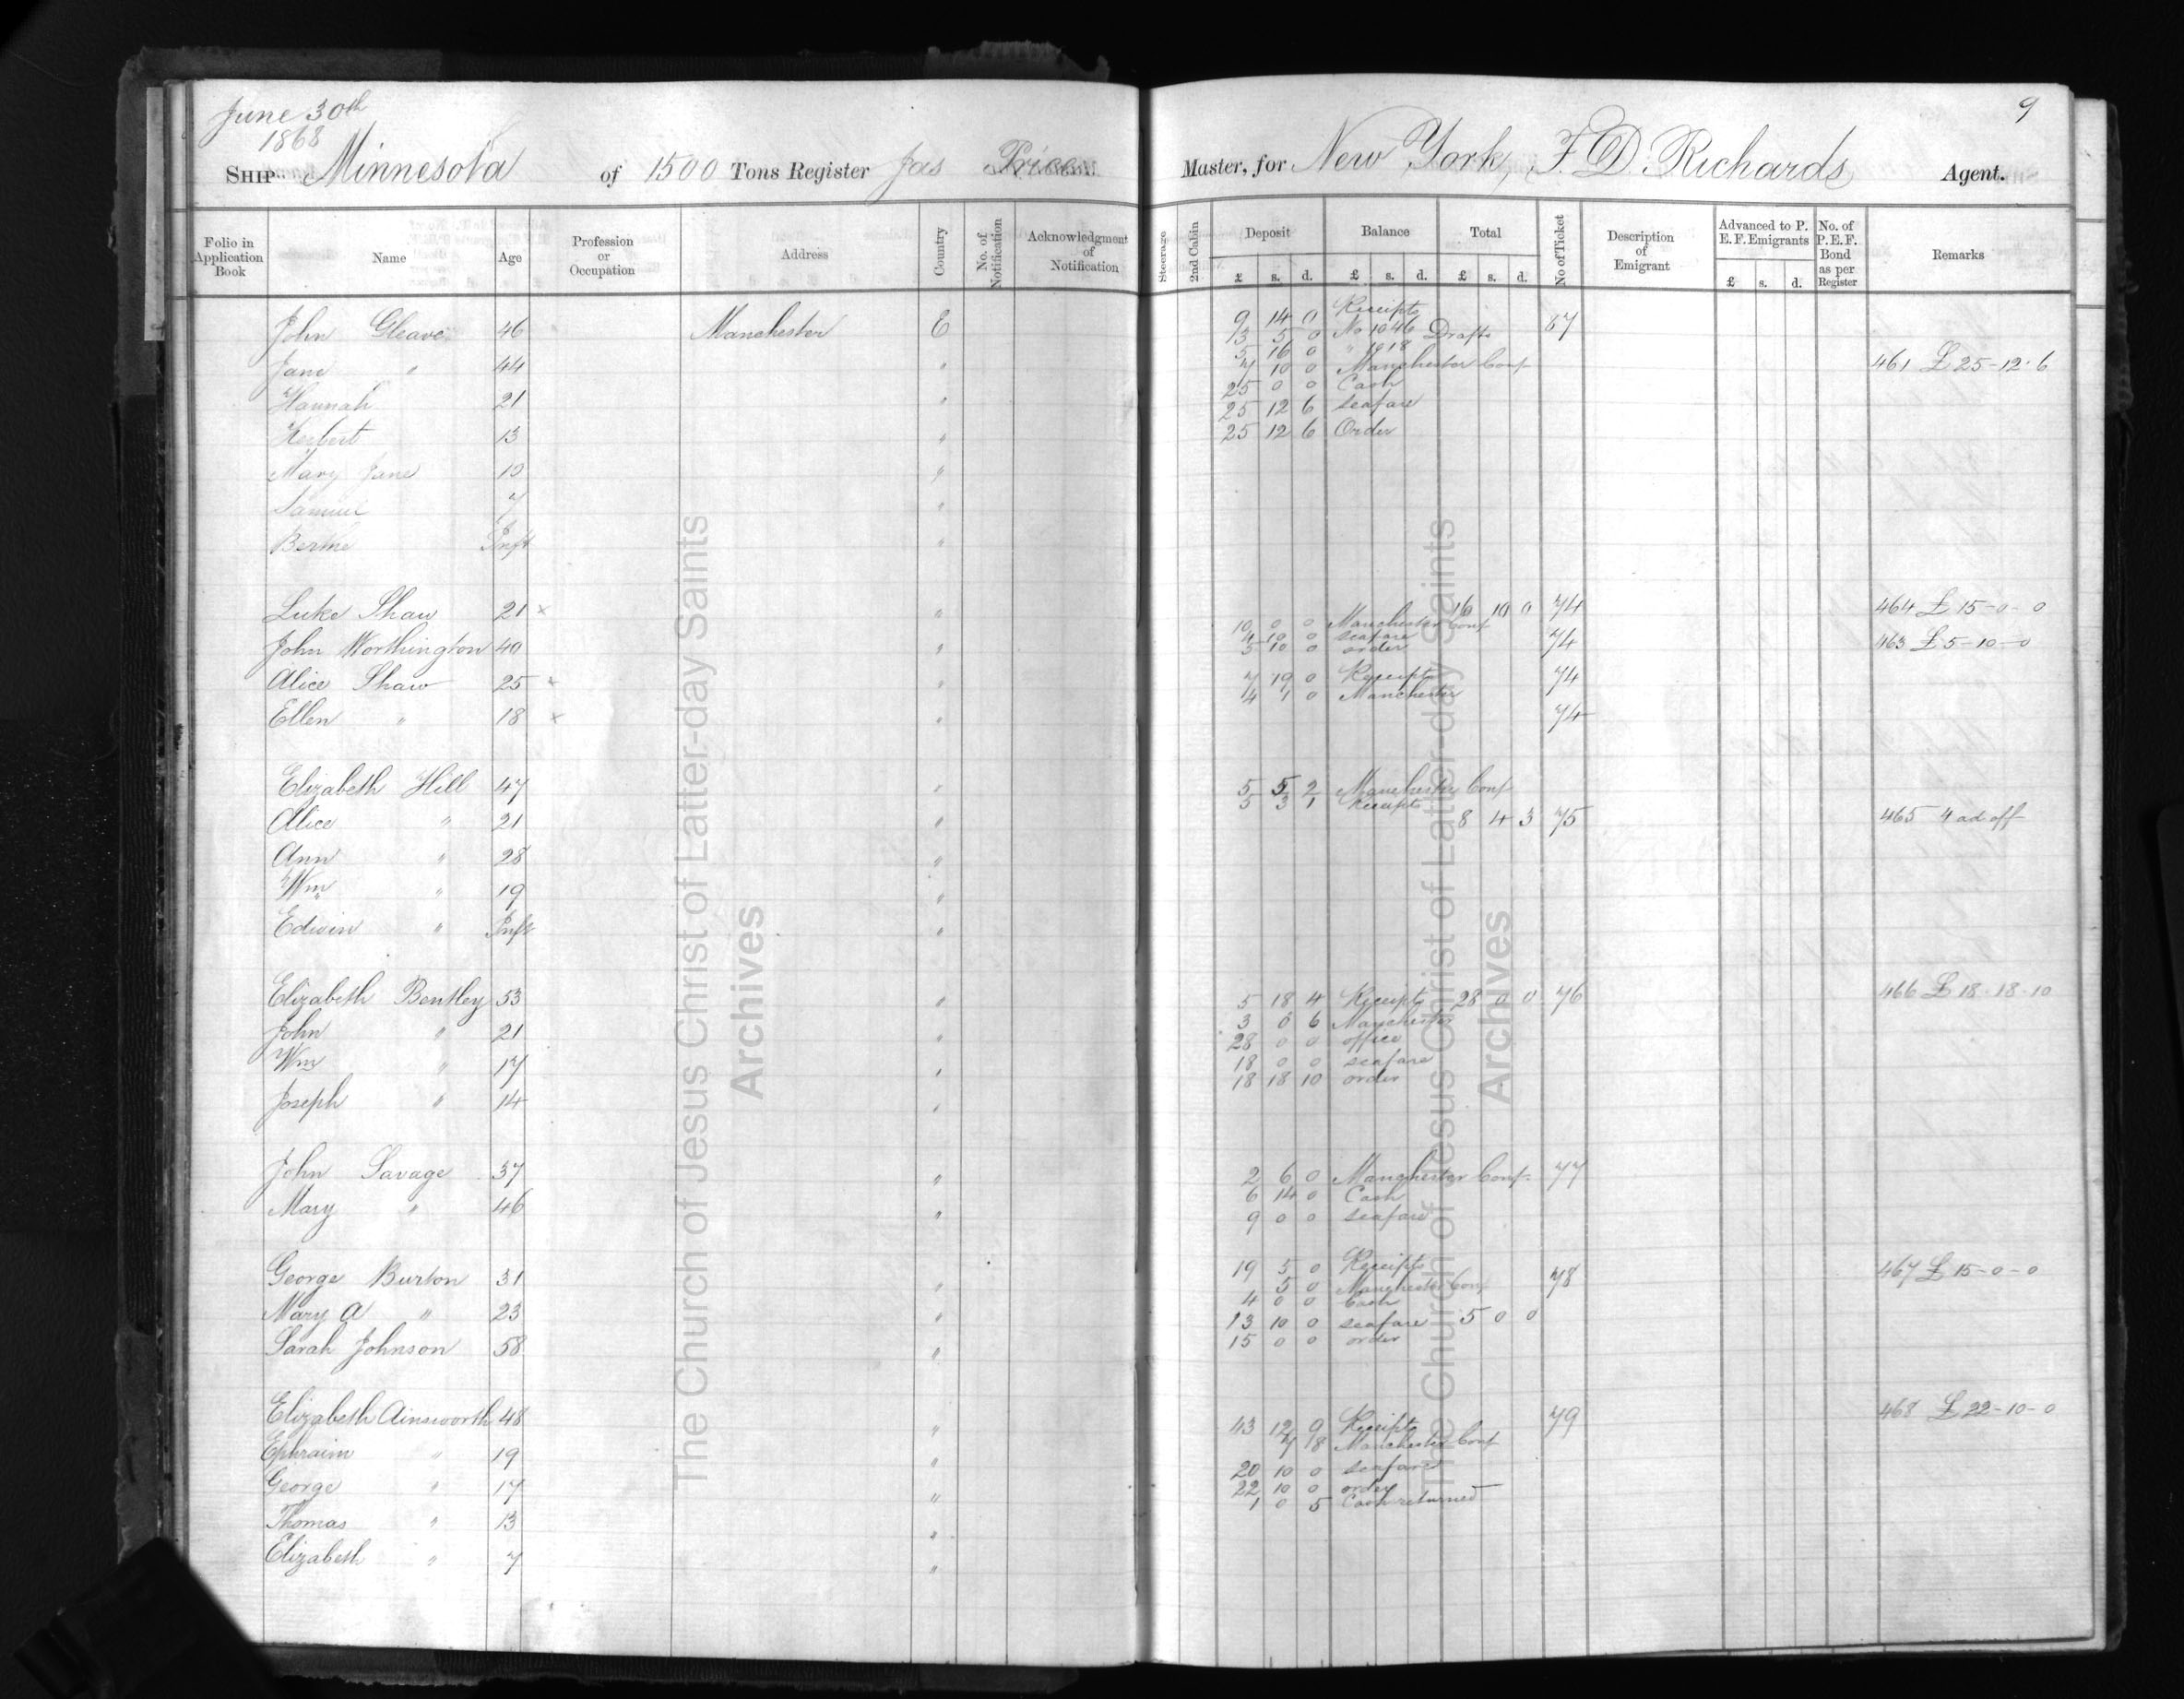 June 30th
1868
9
SHIP Minnesota of 1500 Tons Register Jas Price Master, for New York, F. D. Richards Agent.
Folio in Application Book Name Age Profession or Occupation Address Country No. of Notification Acknowledgment of Notification Steerage 2nd Cabin Deposit Balance Total No of Ticket Description of Emigrant Advanced to P. E. F. Emigrants No. of P.E.F. Bond as per Register Remarks
£ s. d. £ s. d. £ s. d. £ s. d.
John Gleave 46 Manchester E 9 14 0 Receipts 67
13 5 0 No 1046 Drafts
Jane " 44 " 5 16 0 " 1018
7 10 0 Manchester Conf 461 £25-12-6
25 0 0 Cash
Hannah 21 " 25 12 6 seafare
Herbert 13 " 25 12 6 Order
Mary Jane 10 "
Samuel 7 "
Inft "
Luke Shaw 21 x " 16 10 0 74 464 £15-0-0
10 0 0 Manchester Conf
4 10 0 seafare
John Worthington 40 " 5 10 0 order 74 463 £5-10-0
Alice Shaw 25 x " 7 19 0 Receipts 74
4 1 0 Manchester
Ellen " 18 x " 74
Elizabeth Hill 47 " 5 5 2 Manchester Conf
5 3 1 Receipts
Alice " 21 " 8 4 3 75 465 4 ad off
Ann " 28 "
Wm " 19 "
Edwin " Inft "
Elizabeth Bentley 53 " 5 18 4 Receipts 28 0 0 76 466 £18-18-10
3 0 6 Manchester
John " 21 " 28 0 0 office
Wm " 17 " 18 0 0 seafare
18 18 10 order
Joseph " 14 "
John Savage 37 " 2 6 0 Manchester Conf 77
6 14 0 Cash
Mary " 46 " 9 0 0 seafare
George Burton 31 " 19 5 0 Receipts 78 467 £15-0-0
5 0 Manchester Conf
4 0 0 Cash
Mary A " 23 " 13 10 0 seafare 5 0 0
Sarah Johnson 58 " 15 0 0 order
Elizabeth Ainsworth 48 " 43 12 9 Receipts 79 468 £22-10-0
7 8 Manchester Conf
Ephraim " 19 " 20 10 0 seafare
George " 17 " 22 10 0 order
1 0 5 Cash returned
Thomas " 13 "
Elizabeth " 7 "
The Church of Jesus Christ of Latter-day Saints
Archives
The Church of Jesus Christ of Latter-day Saints
Archives